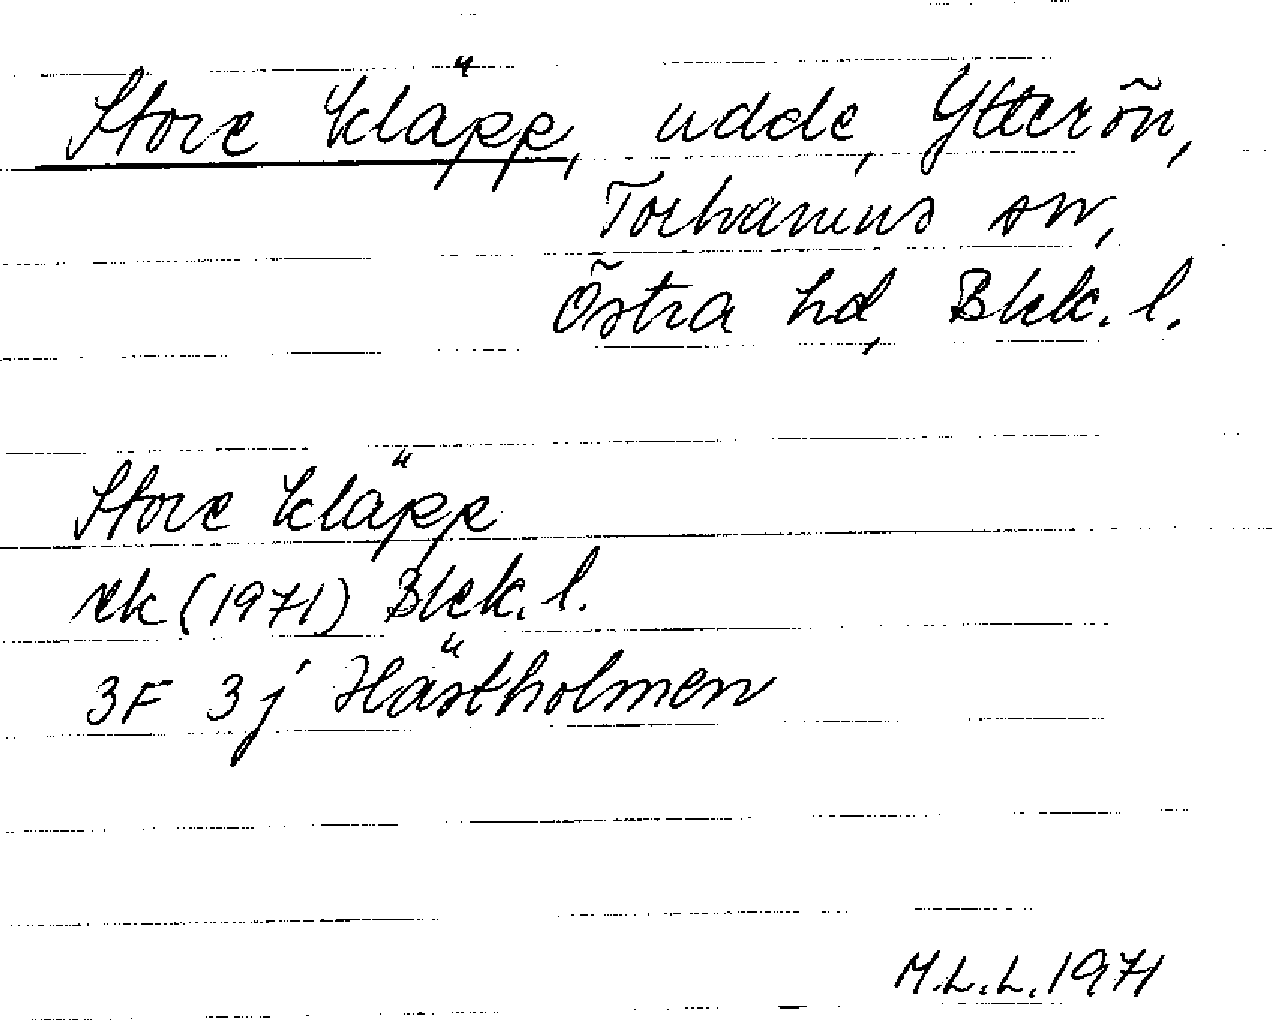 Store Kläpp, udde, Ytterön,
Torhamns sn,
Östra hd, Blek. l.
Store Kläpp
ek (1971) Blek. l.
3F 3j Hästholmen
M.L.L. 1971